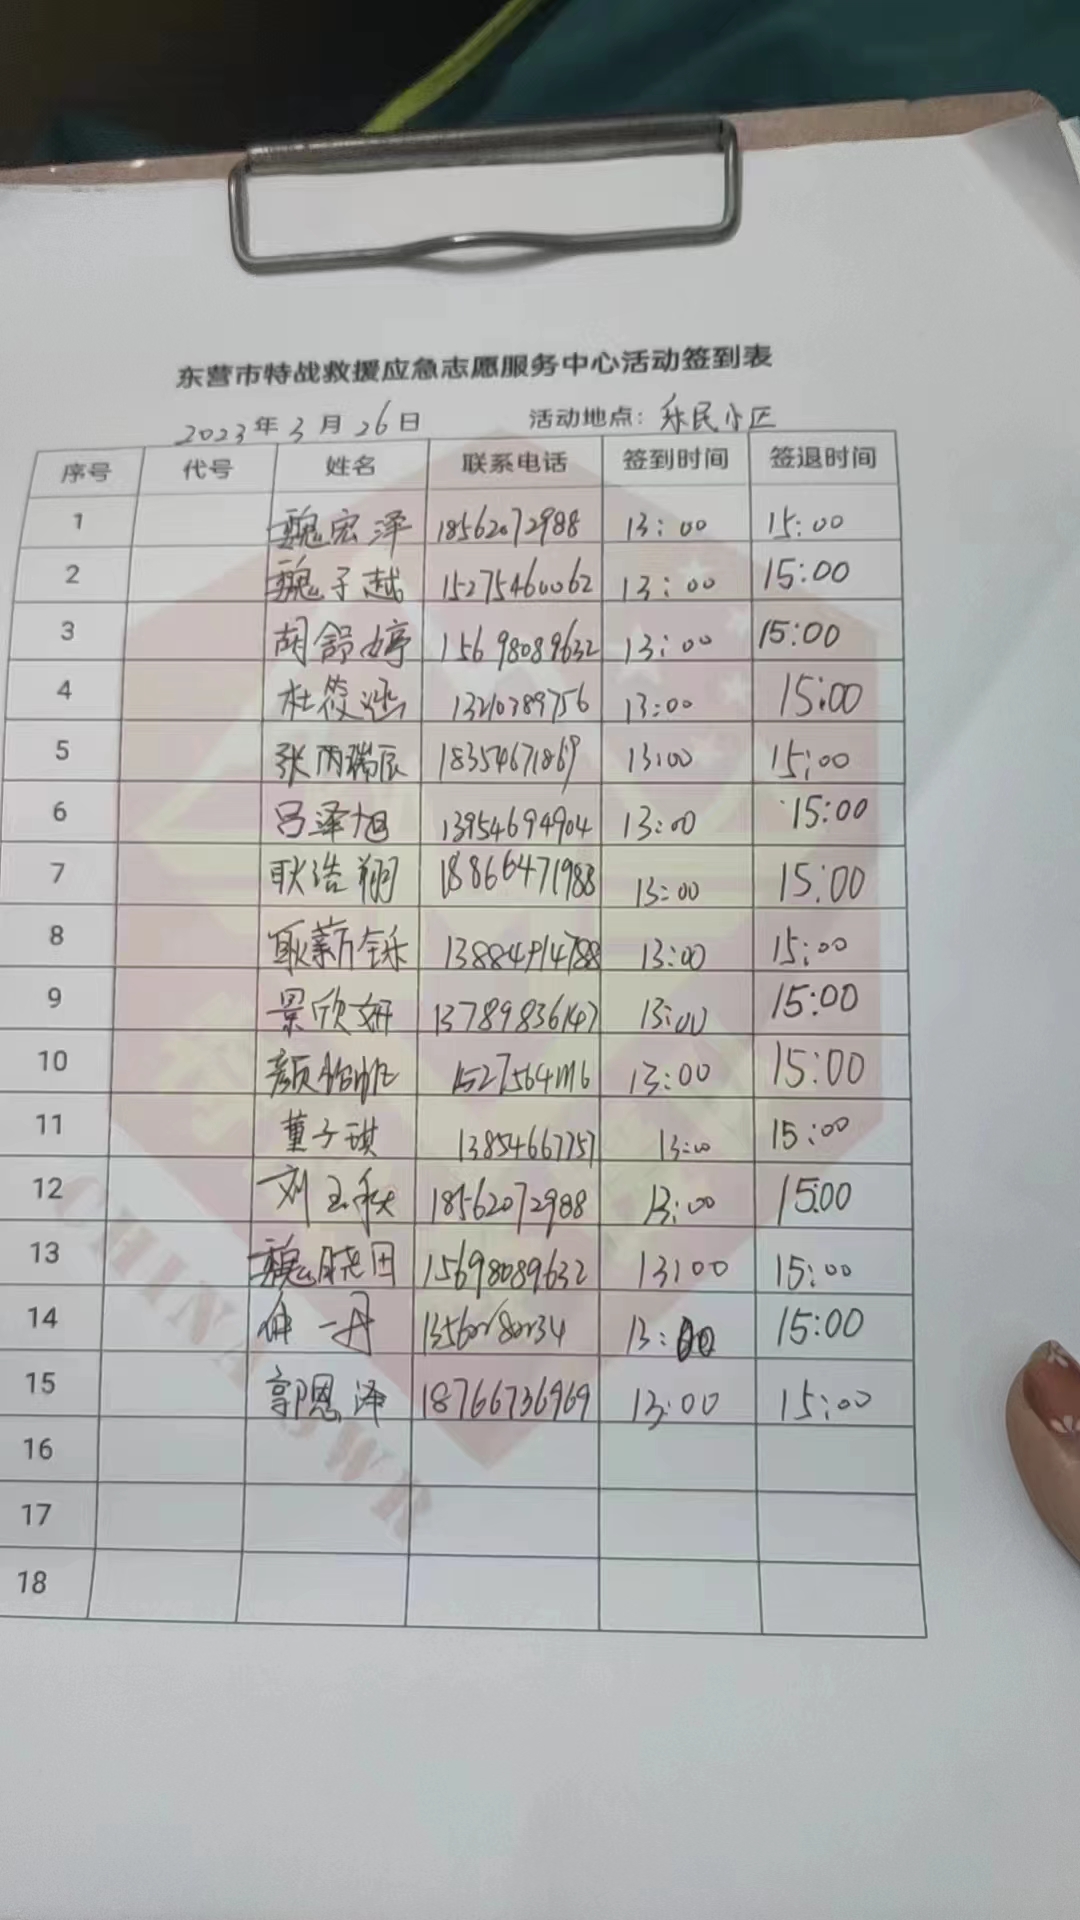 东营市特战救援应急志愿服务中心活动签到表
2023年3月26日 活动地点：利民小区
序号 代号 姓名 联系电话 签到时间 签退时间
1 魏宏泽 18562072988 13:00 15:00
2 魏子越 15275460062 13:00 15:00
3 胡舒婷 15698089632 13:00 15:00
4 杜筱涵 13:00 15:00
5 张丙瑞辰 18354671869 13:00 15:00
6 吕泽旭 13954694904 13:00 15:00
7 耿浩翔 18866471988 13:00 15:00
8 耿薪铄 13884914788 13:00 15:00
9 景欣妍 13789836147 13:00 15:00
10 13:00 15:00
11 董子琪 13854667757 13:00 15:00
12 刘玉秋 18562072988 13:00 15:00
13 魏晓田 15698089632 13:00 15:00
14 一丹 13:00 15:00
15 郭恩泽 18766736969 13:00 15:00
16
17
18
CHINA SWR